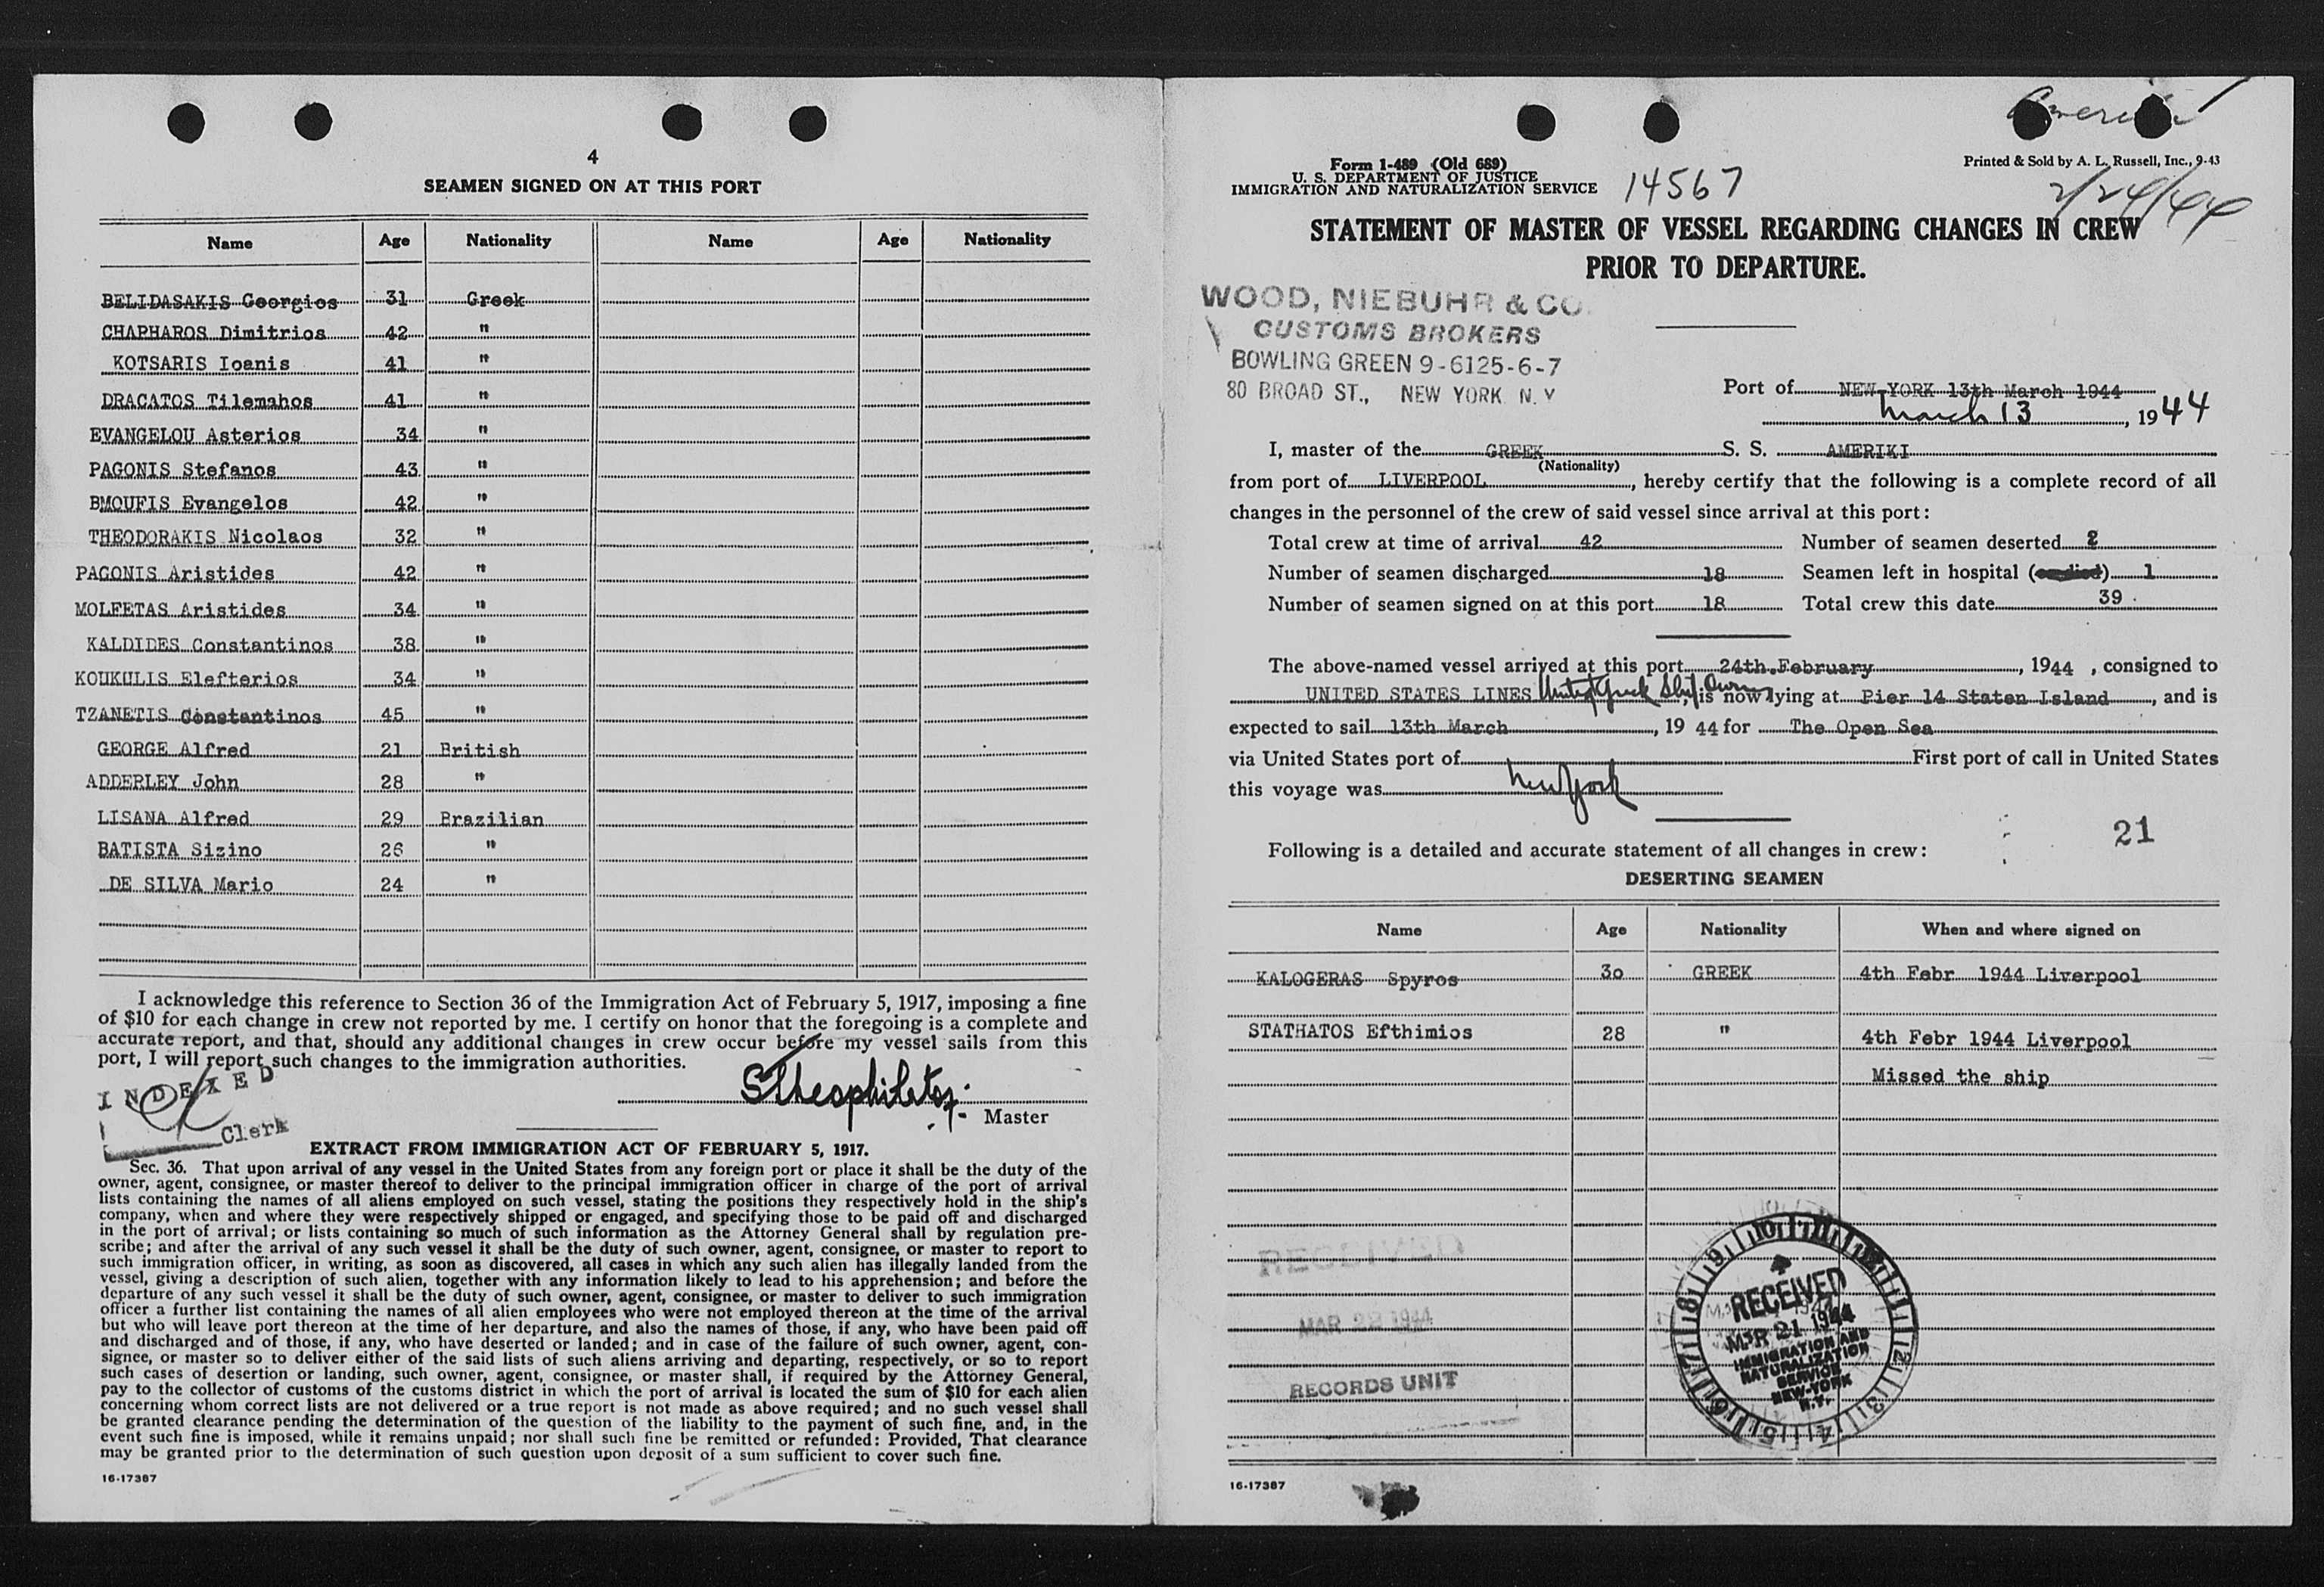 4
SEAMEN SIGNED ON AT THIS PORT
Name Age Nationality Name Age Nationality
BELIDASAKIS Georgios 31 Greek
CHAPHAROS Dimitrios 42 "
KOTSARIS Ioanis 41 "
DRACATOS Tilemahos 41 "
EVANGELOU Asterios 34 "
PAGONIS Stefanos 43 "
BMOUFIS Evangelos 42 "
THEODORAKIS Nicolaos 32 "
PAGONIS Aristides 42 "
MOLFETAS Aristides 34 "
KALDIDES Constantinos 38 "
KOUKULIS Elefterios 34 "
TZANETIS Constantinos 45 "
GEORGE Alfred 21 British
ADDERLEY John 28 "
LISANA Alfred 29 Brazilian
BATISTA Sizino 26 "
DE SILVA Mario 24 "
I acknowledge this reference to Section 36 of the Immigration Act of February 5, 1917, imposing a fine
of $10 for each change in crew not reported by me. I certify on honor that the foregoing is a complete and
accurate report, and that, should any additional changes in crew occur before my vessel sails from this
port, I will report such changes to the immigration authorities.
INDEXED
Clerk
Master
EXTRACT FROM IMMIGRATION ACT OF FEBRUARY 5, 1917.
Sec. 36. That upon arrival of any vessel in the United States from any foreign port or place it shall be the duty of the
owner, agent, consignee, or master thereof to deliver to the principal immigration officer in charge of the port of arrival
lists containing the names of all aliens employed on such vessel, stating the positions they respectively hold in the ship's
company, when and where they were respectively shipped or engaged, and specifying those to be paid off and discharged
in the port of arrival; or lists containing so much of such information as the Attorney General shall by regulation pre-
scribe; and after the arrival of any such vessel it shall be the duty of such owner, agent, consignee, or master to report to
such immigration officer, in writing, as soon as discovered, all cases in which any such alien has illegally landed from the
vessel, giving a description of such alien, together with any information likely to lead to his apprehension; and before the
departure of any such vessel it shall be the duty of such owner, agent, consignee, or master to deliver to such immigration
officer a further list containing the names of all alien employees who were not employed thereon at the time of the arrival
but who will leave port thereon at the time of her departure, and also the names of those, if any, who have been paid off
and discharged and of those, if any, who have deserted or landed; and in case of the failure of such owner, agent, con-
signee, or master so to deliver either of the said lists of such aliens arriving and departing, respectively, or so to report
such cases of desertion or landing, such owner, agent, consignee, or master shall, if required by the Attorney General,
pay to the collector of customs of the customs district in which the port of arrival is located the sum of $10 for each alien
concerning whom correct lists are not delivered or a true report is not made as above required; and no such vessel shall
be granted clearance pending the determination of the question of the liability to the payment of such fine, and, in the
event such fine is imposed, while it remains unpaid; nor shall such fine be remitted or refunded: Provided, That clearance
may be granted prior to the determination of such question upon deposit of a sum sufficient to cover such fine.
16-17387
Form I-489 (Old 689)
U. S. DEPARTMENT OF JUSTICE
IMMIGRATION AND NATURALIZATION SERVICE
14567
Printed & Sold by A. L. Russell, Inc., 9-43
2/24/44
STATEMENT OF MASTER OF VESSEL REGARDING CHANGES IN CREW
PRIOR TO DEPARTURE.
WOOD, NIEBUHR & CO.
CUSTOMS BROKERS
BOWLING GREEN 9-6125-6-7
80 BROAD ST., NEW YORK N. Y
Port of NEW YORK 13th March 1944
March 13, 1944
I, master of the GREEK S. S. AMERIKI
(Nationality)
from port of LIVERPOOL, hereby certify that the following is a complete record of all
changes in the personnel of the crew of said vessel since arrival at this port:
Total crew at time of arrival 42 Number of seamen deserted 2
Number of seamen discharged 18 Seamen left in hospital (or died) 1
Number of seamen signed on at this port 18 Total crew this date 39
The above-named vessel arrived at this port 24th. February, 1944, consigned to
UNITED STATES LINES United Greek Ship Owners, is now lying at Pier 14 Staten Island, and is
expected to sail 13th March, 1944 for The Open Sea
via United States port of First port of call in United States
this voyage was New York
21
Following is a detailed and accurate statement of all changes in crew:
DESERTING SEAMEN
Name Age Nationality When and where signed on
KALOGERAS Spyros 30 GREEK 4th Febr 1944 Liverpool
STATHATOS Efthimios 28 " 4th Febr 1944 Liverpool
Missed the ship
RECEIVED
MAR 22 1944
RECORDS UNIT
RECEIVED
MAR 21 1944
IMMIGRATION AND
NATURALIZATION
SERVICE
NEW-YORK
N.Y.
16-17387